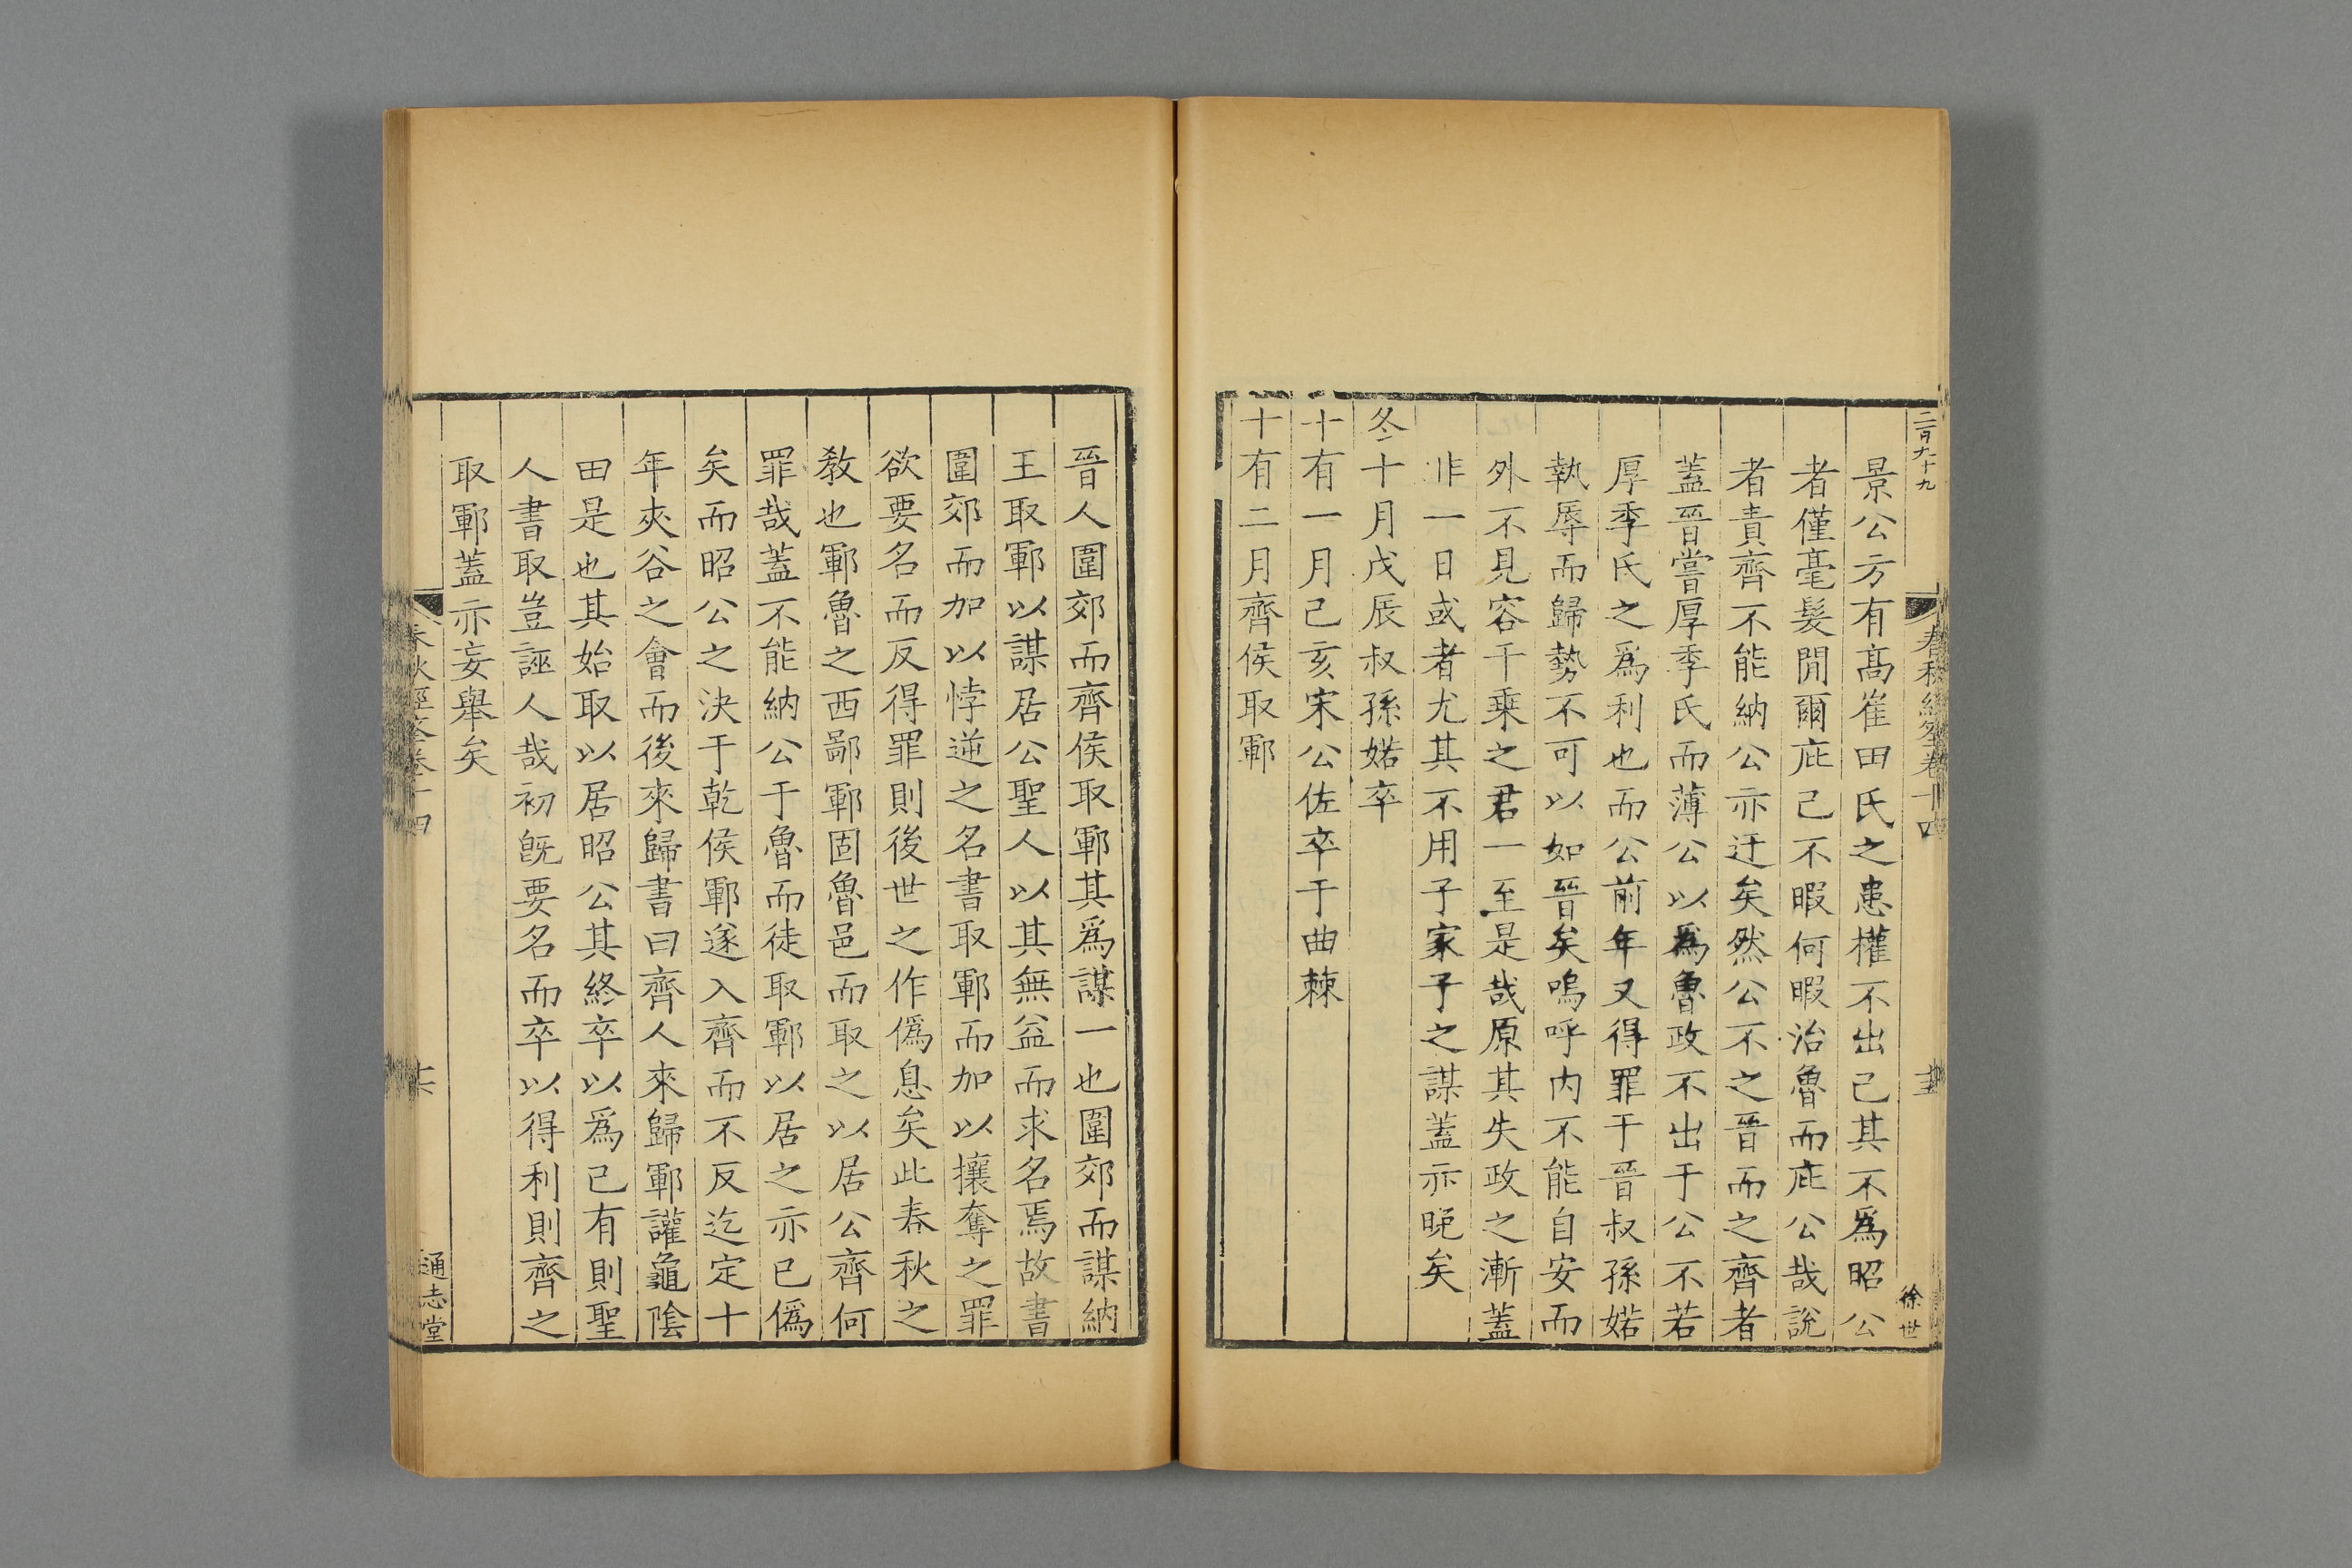 二百九十九
春秋經筌卷十四
十五
徐世
景公方有髙崔田氏之患權不出己其不爲昭公
者僅毫髮閒爾庇己不暇何暇治魯而庇公哉說
者責齊不能納公亦迂矣然公不之晉而之齊者
蓋晉嘗厚季氏而薄公以爲魯政不出于公不若
厚季氏之爲利也而公前年又得罪于晉叔孫婼
執辱而歸勢不可以如晉矣嗚呼内不能自安而
外不見容千乗之君一至是哉原其失政之漸蓋
非一日或者尤其不用子家子之謀蓋亦晚矣
冬十月戊辰叔孫婼卒
十有一月己亥宋公佐卒于曲棘
十有二月齊侯取鄆
晉人圍郊而齊侯取鄆其爲謀一也圍郊而謀納
王取鄆以謀居公聖人以其無益而求名焉故書
圍郊而加以悖逆之名書取鄆而加以攘奪之罪
欲要名而反得罪則後世之作僞息矣此春秋之
敎也鄆魯之西鄙鄆固魯邑而取之以居公齊何
罪哉蓋不能納公于魯而徒取鄆以居之亦已僞
矣而昭公之決于乾侯鄆遂入齊而不反迄定十
年夾谷之會而後來歸書曰齊人來歸鄆讙龜陰
田是也其始取以居昭公其終卒以爲己有則聖
人書取豈誣人哉初旣要名而卒以得利則齊之
取鄆蓋亦妄舉矣
春秋經筌卷十四
通志堂